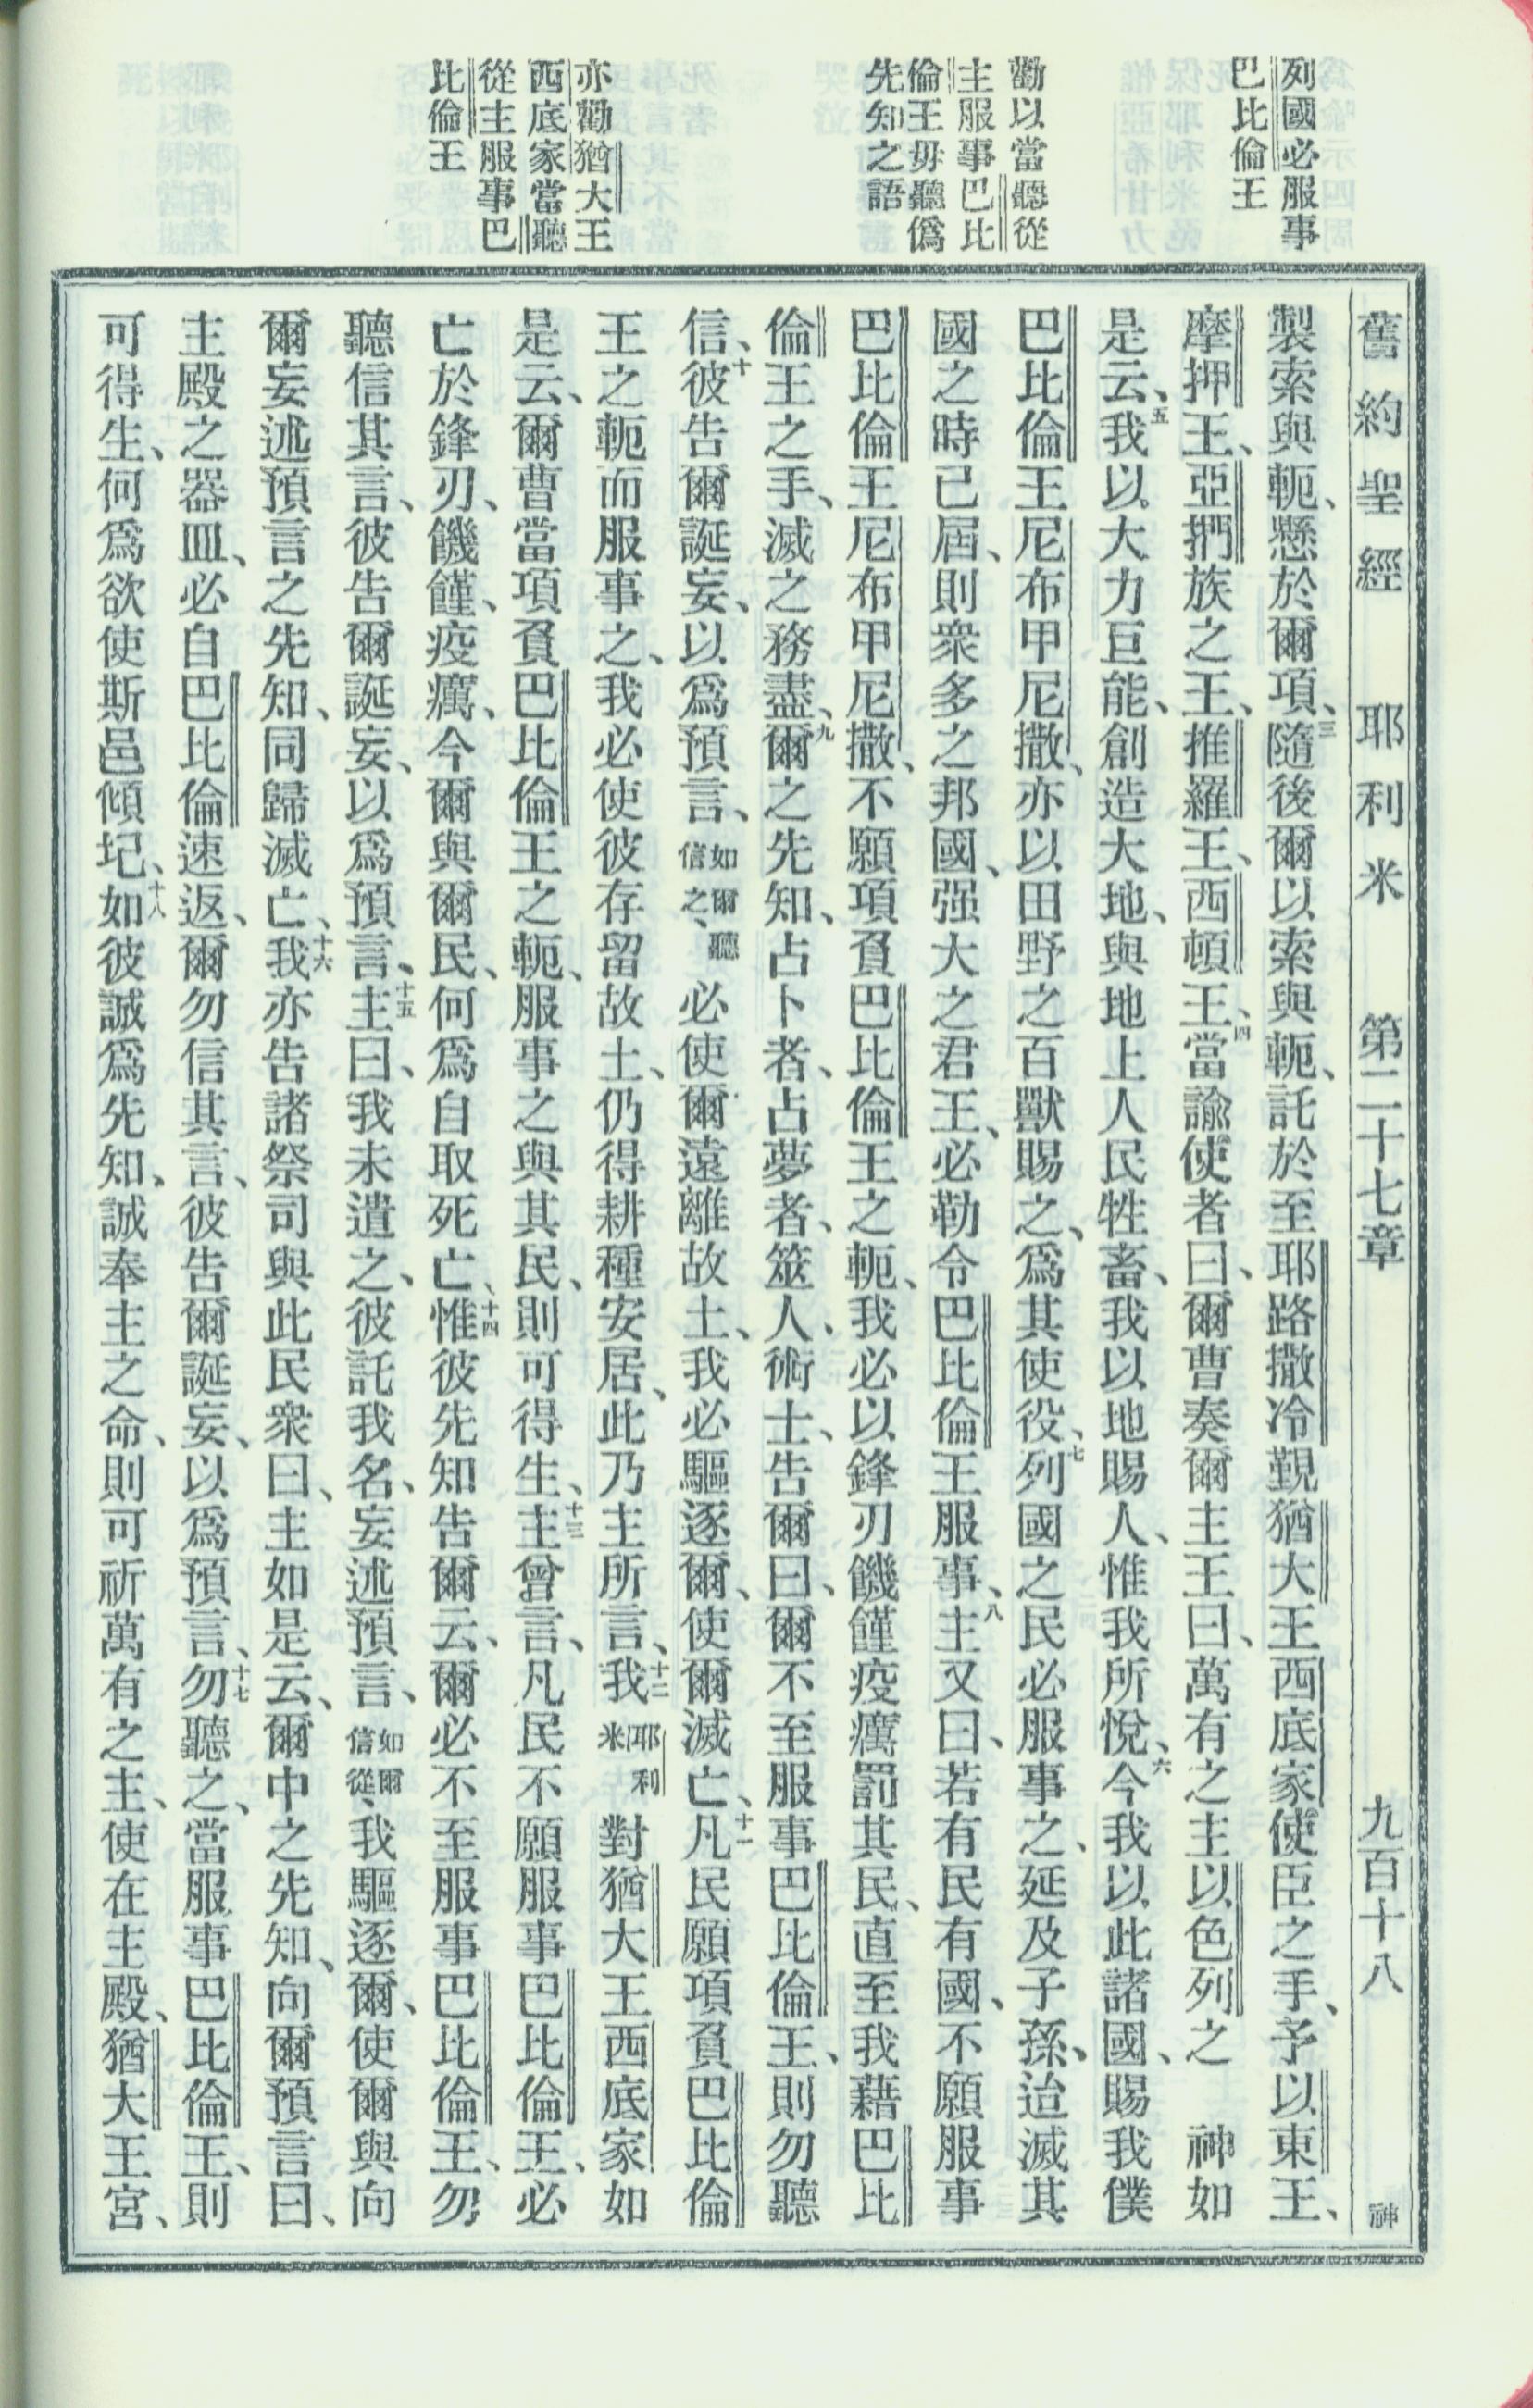 舊約聖經 耶利米 第二十七章 九百十八 神
列國必服事
巴比倫王
勸以當聽從
主服事巴比
倫王毋聽僞
先知之語
亦勸猶大王
西底家當聽
從主服事巴
比倫王
製索與軛、懸於爾項、三隨後爾以索與軛、託於至耶路撒冷覲猶大王西底家使臣之手、予以東王、
摩押王、亞捫族之王、推羅王、西頓王、四當諭使者曰、爾曹奏爾主王曰、萬有之主以色列之 神如
是云、五我以大力巨能、創造大地、與地上人民牲畜、我以地賜人、惟我所悅、六今我以此諸國、賜我僕
巴比倫王尼布甲尼撒、亦以田野之百獸賜之、爲其使役、七列國之民必服事之、延及子孫、迨滅其
國之時已屆、則衆多之邦國、强大之君王、必勒令巴比倫王服事、八主又曰、若有民有國、不願服事
巴比倫王尼布甲尼撒、不願項負巴比倫王之軛、我必以鋒刃饑饉疫癘罰其民、直至我藉巴比
倫王之手、滅之務盡、九爾之先知、占卜者、占夢者、筮人、術士、告爾曰、爾不至服事巴比倫王、則勿聽
信、十彼告爾誕妄、以爲預言、如爾聽信之、必使爾遠離故土、我必驅逐爾、使爾滅亡、十一凡民願項負巴比倫
王之軛而服事之、我必使彼存留故土、仍得耕種安居、此乃主所言、十二我耶利米對猶大王西底家如
是云、爾曹當項負巴比倫王之軛、服事之與其民、則可得生、十三主曾言、凡民不願服事巴比倫王、必
亡於鋒刃、饑饉、疫癘、今爾與爾民、何爲自取死亡、十四惟彼先知告爾云、爾必不至服事巴比倫王、勿
聽信其言、彼告爾誕妄、以爲預言、十五主曰、我未遣之、彼託我名、妄述預言、如爾信從、我驅逐爾、使爾與向
爾妄述預言之先知、同歸滅亡、十六我亦告諸祭司與此民衆曰、主如是云、爾中之先知、向爾預言曰、
主殿之器皿、必自巴比倫速返、爾勿信其言、彼告爾誕妄、以爲預言、十七勿聽之、當服事巴比倫王、則
可得生、何爲欲使斯邑傾圮、十八如彼誠爲先知、誠奉主之命、則可祈萬有之主、使在主殿、猶大王宮、